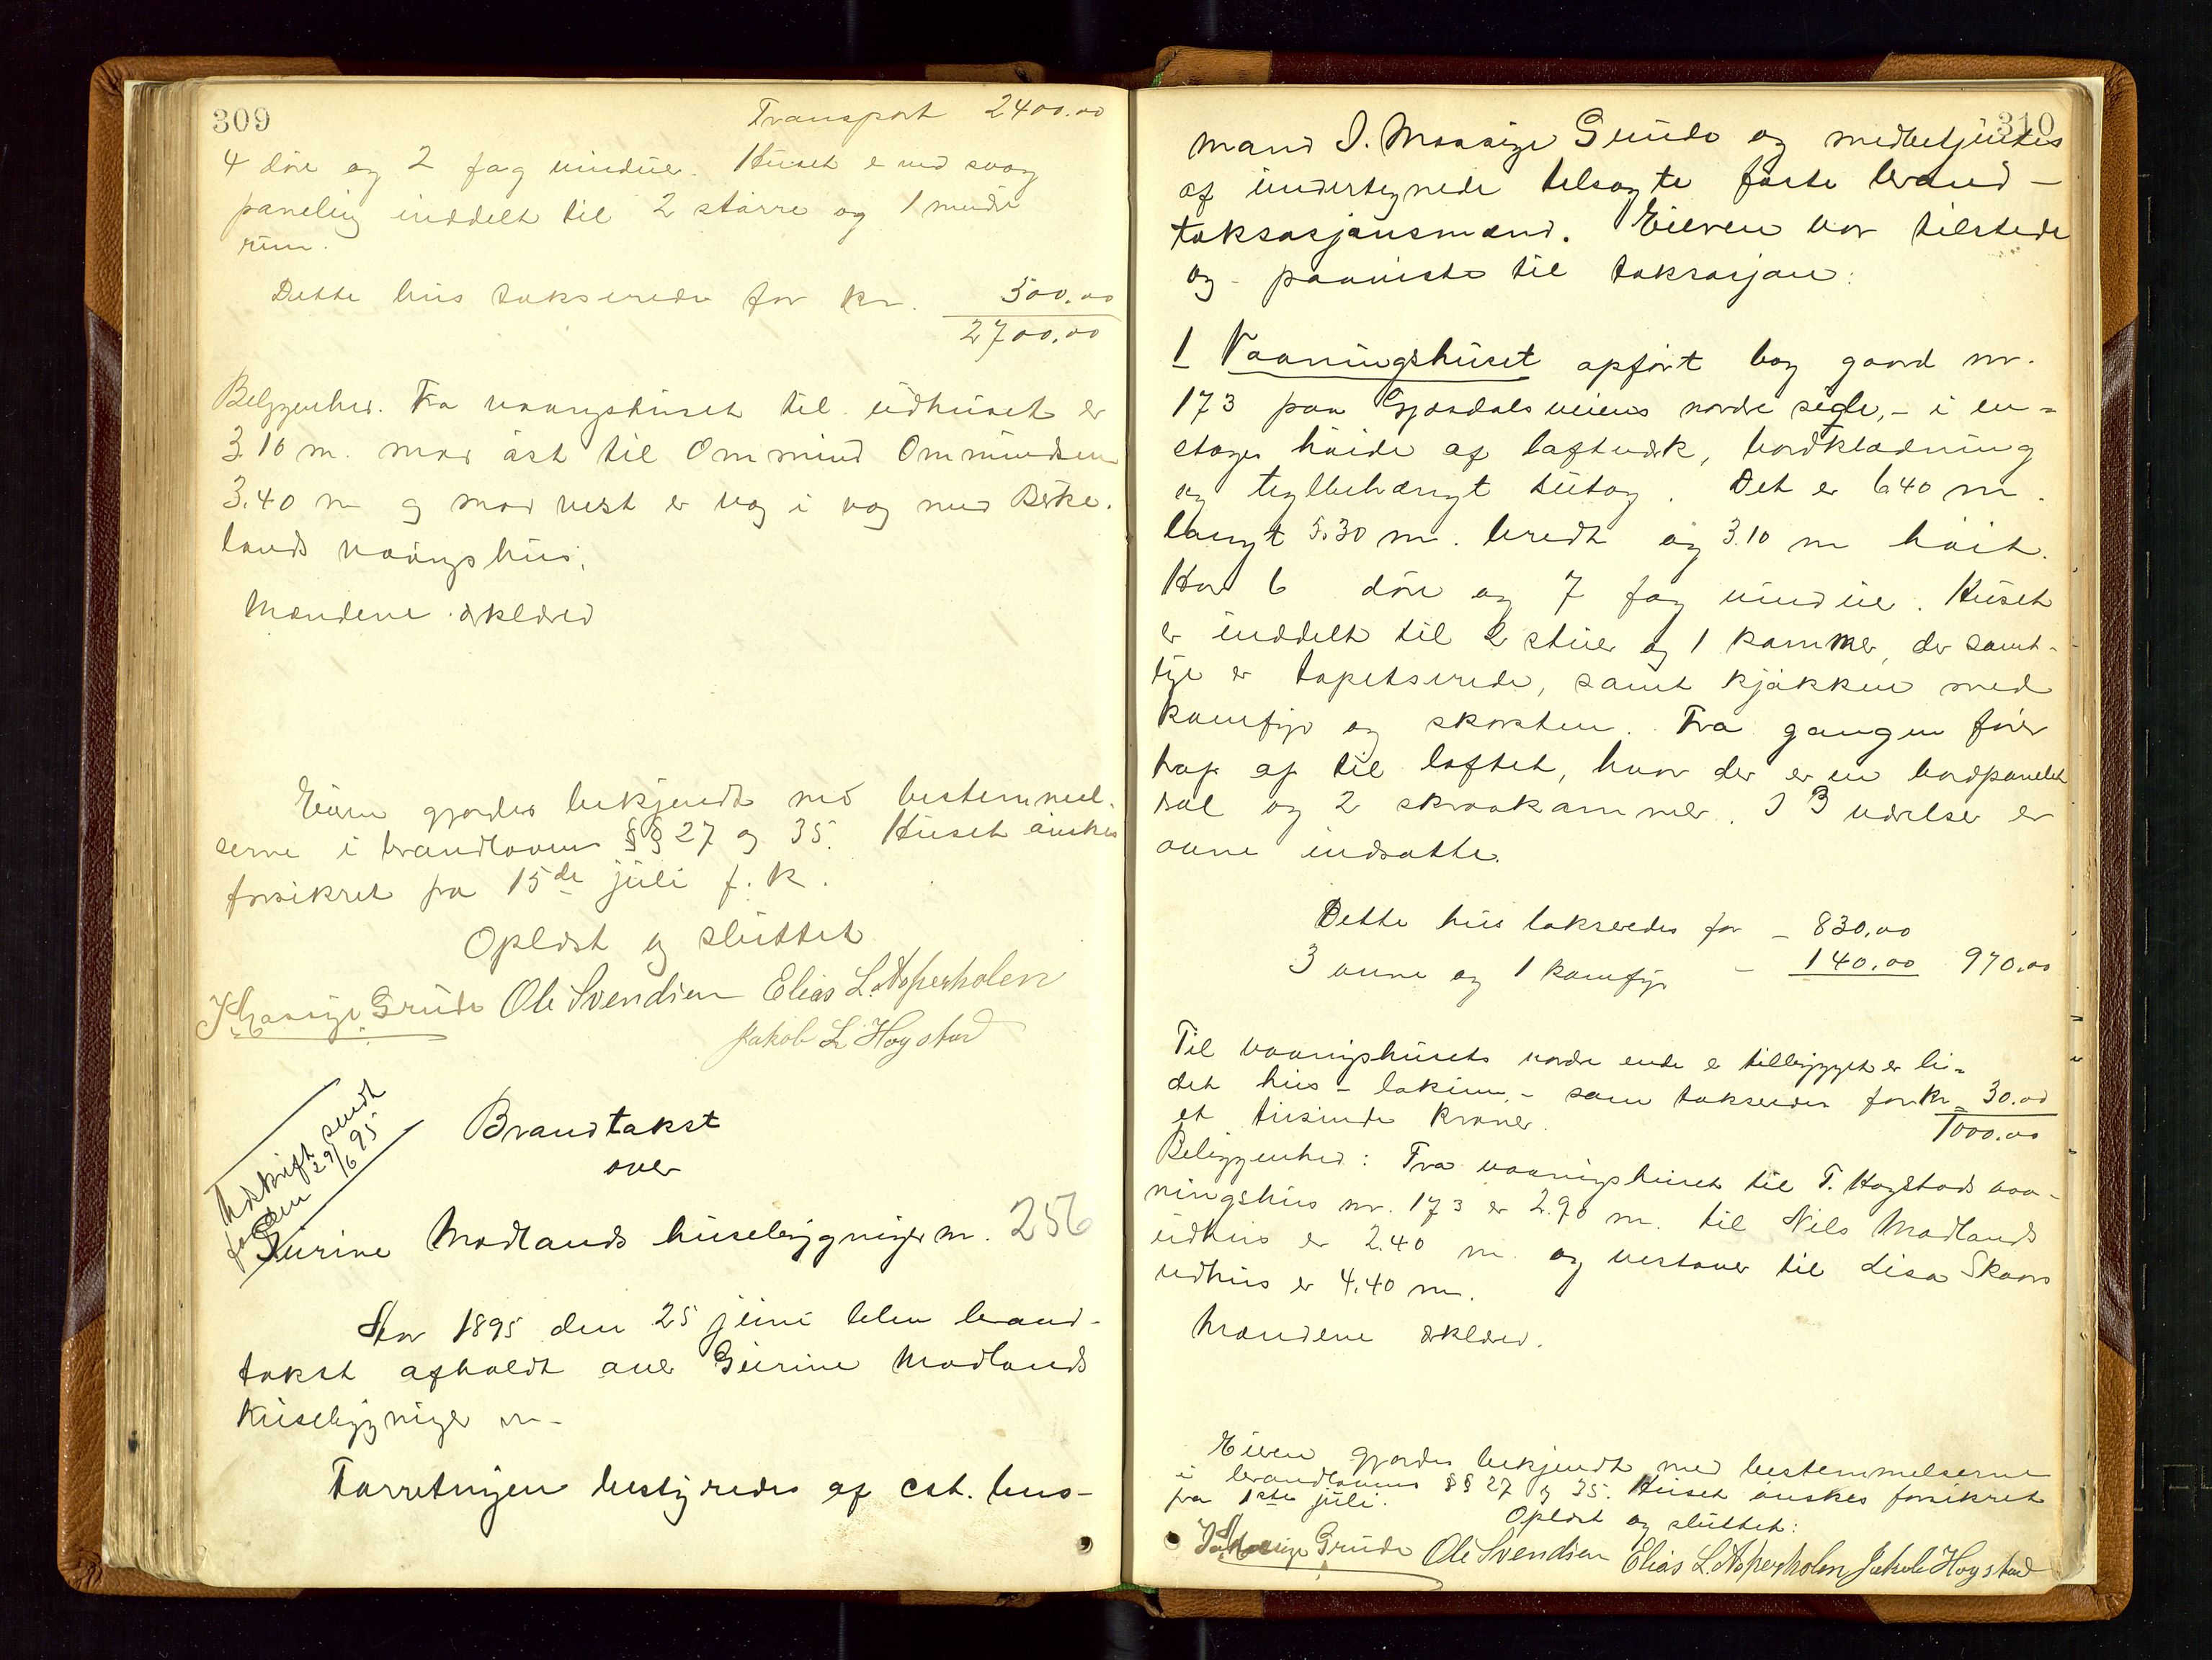 309
Transport 2400.00
4 döre og 2 fag vinduer. Huset er ved svag
paneling inddelt til 2 større og 1 mindre
rum.
Dette hus takseredes for kr. 300.00
2700.00
Beliggenhed. Fra vaaningshuset til udhuset er
3.10 m. mod øst til Ommund Ommundsen
3.40 m og mod vest er væg i væg med Birke-
lands vaaningshus.
Mændene erklæred
Eieren gjordes bekjendt med bestemmel-
serne i brandlovens §§ 27 og 35. Huset ønskes
forsikret fra 15de juli f. k.
Oplæst og sluttet
J. Maasige Grude Ole Svendsen Elias L. Asperholen
Jakob L Hogstad
Udskrift sendt
den 29/6 95
Brandtakst
over
Gurine Modlands husebygninger m. 256
Aar 1895 den 25 juni blev brand-
takst afholdt over Gurine Modlands
husebygninger m-
Forretningen bestyredes af cst. lens-
310
mand J. Maasige Grude og medbetjentes
af undertegnede tilsagte faste brand-
taksasjonsmænd. Eieren var tilstede
og paaviste til taksasjon:
1 Vaaningshuset opført bag gaard nr.
173 paa Gjesdalsveiens nordre side, - i en-
etages høide af laftverk, bordklædning
og teglbehængt tuttag. Det er 6.40 m.
langt 5.30 m. bredt og 3.10 m høit.
Har 6 döre og 7 fag vinduer. Huset
er inddelt til 2 stuer og 1 kammer, der samt-
lige er tapetserede, samt kjøkken med
komfyr og skorsten. Fra gangen fører
trap op til loftet, hvor der er en bordpanelet
sal og 2 skraakammer. I 3 værelser er
ovne indsatte.
Dette hus takseredes for - 830.00
3 ovne og 1 komfyr - 140.00 970.00
Til vaaningshusets nordre ende er tilbygget et li-
det hus - lokum, - som takseredes for kr. 30.00
et tusinde kroner. 1000.00
Beliggenhed: Fra vaaningshuset til T. Hogstads vaa-
ningshus nr. 173 er 2.90 m. til Nils Modlands
udhus er 2.40 m. og vestover til Lisa Skaars
udhus er 4.40 m.
Mændene erklæred.
Eieren gjordes bekjendt med bestemmelserne
i brandlovens §§ 27 og 35. Huset ønskes forsikret
fra 1ste juli.
Oplæst og sluttet:
J. Maasige Grude Ole Svendsen Elias L. Asperholen Jakob Hogstad